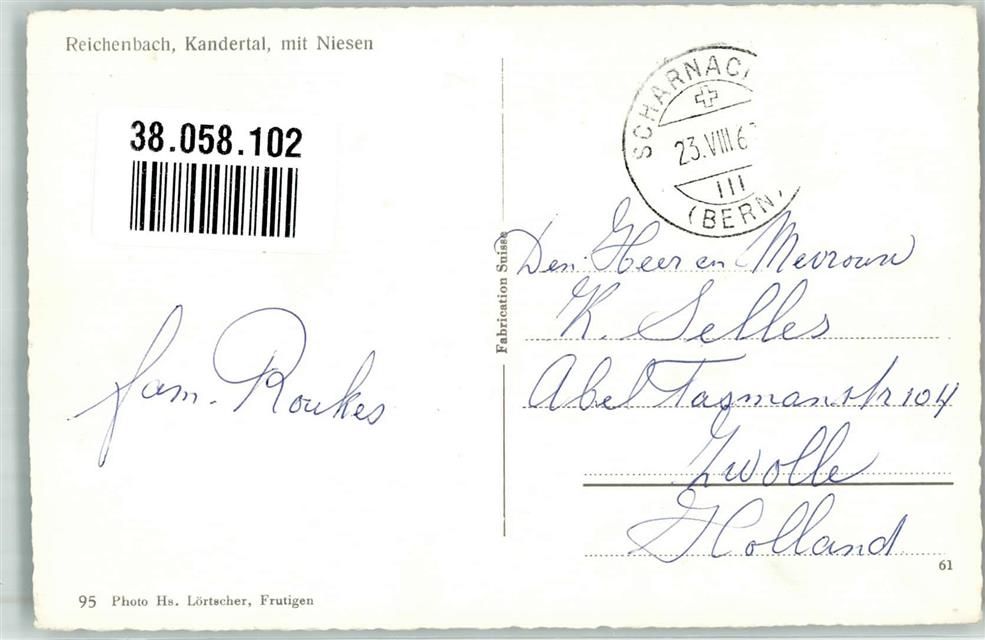 Reichenbach, Kandertal, mit Niesen
38.058.102
fam. Roukes
95 Photo Hs. Lörtscher, Frutigen
Fabrication Suisse
SCHARNAC
23.VIII.6
III
(BERN)
Den Heer en Mevrouw
K. Selles
Abel Tasmanstr 104
Zwolle
Holland
61